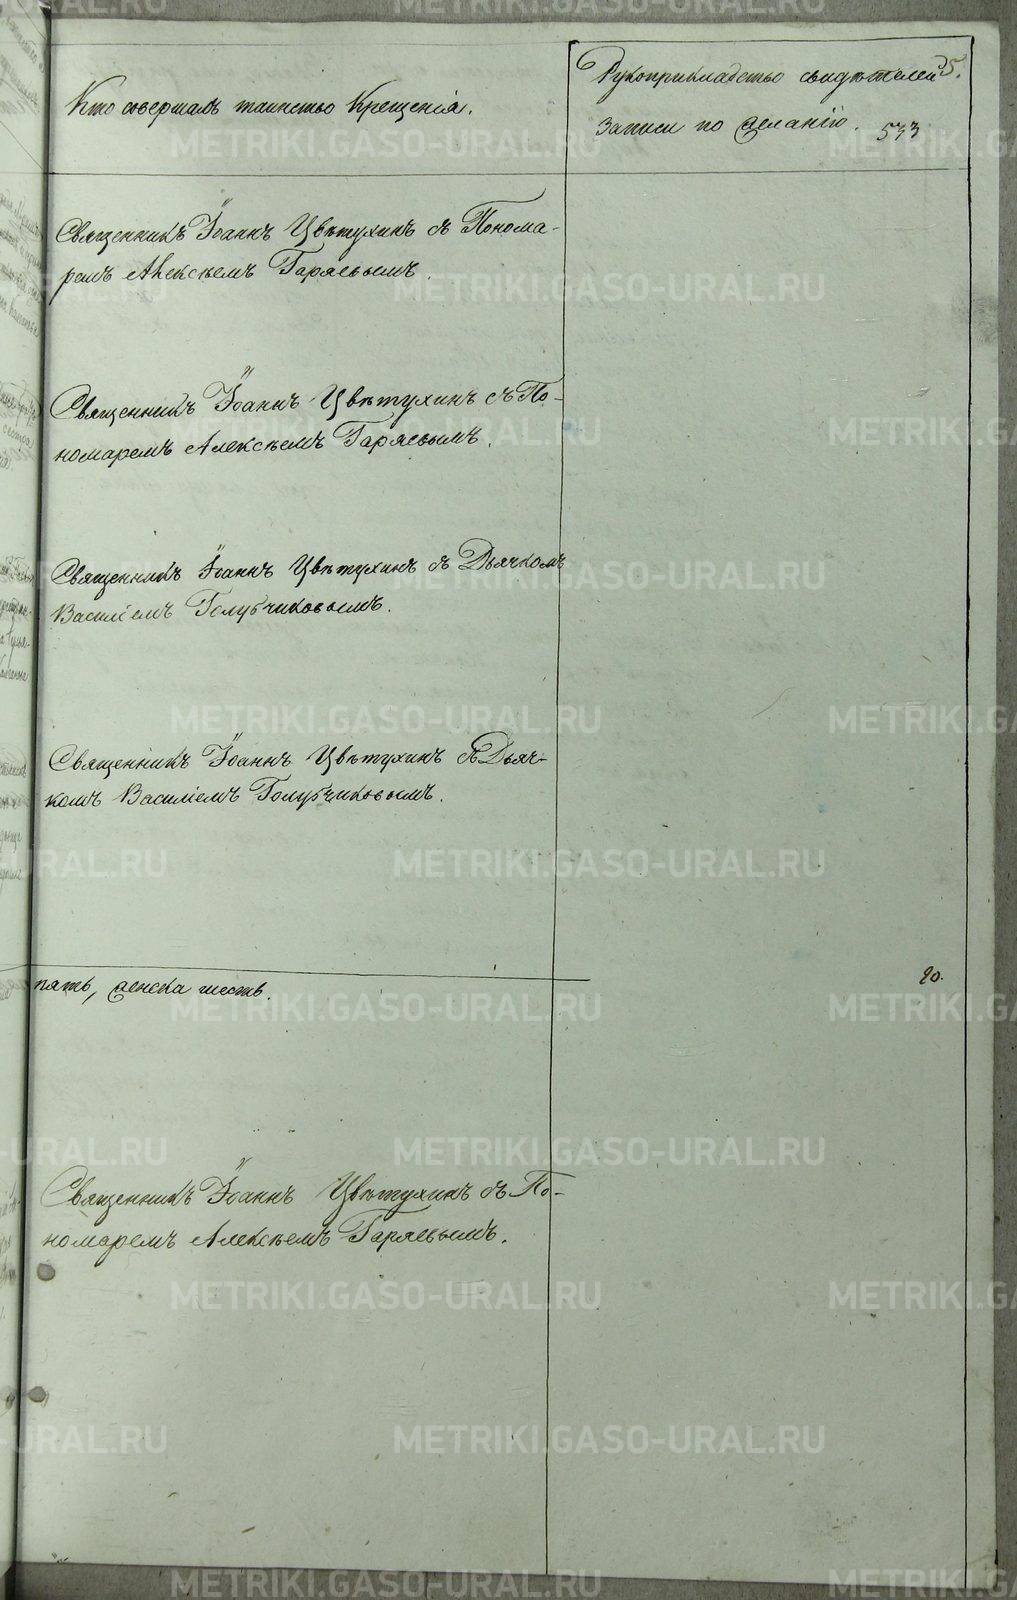 Кто совершалъ таинство Крещенія.
Рукоприкладство свидѣтелей
записи по желанію.
35.
533
Священникъ Іоаннъ Цвѣтухинъ съ Понома-
ремъ Алексѣемъ Гаряевымъ.
Священникъ Іоаннъ Цвѣтухинъ съ По-
номаремъ Алексѣемъ Гаряевымъ.
Священникъ Іоаннъ Цвѣтухинъ съ Дьячкомъ
Василіемъ Голубчиковымъ.
Священникъ Іоаннъ Цвѣтухинъ съ Дьяч-
комъ Василіемъ Голубчиковымъ.
пять, женска шесть.
Священникъ Іоаннъ Цвѣтухинъ съ По-
номаремъ Алексѣемъ Гаряевымъ.
METRIKI.GASO-URAL.RU